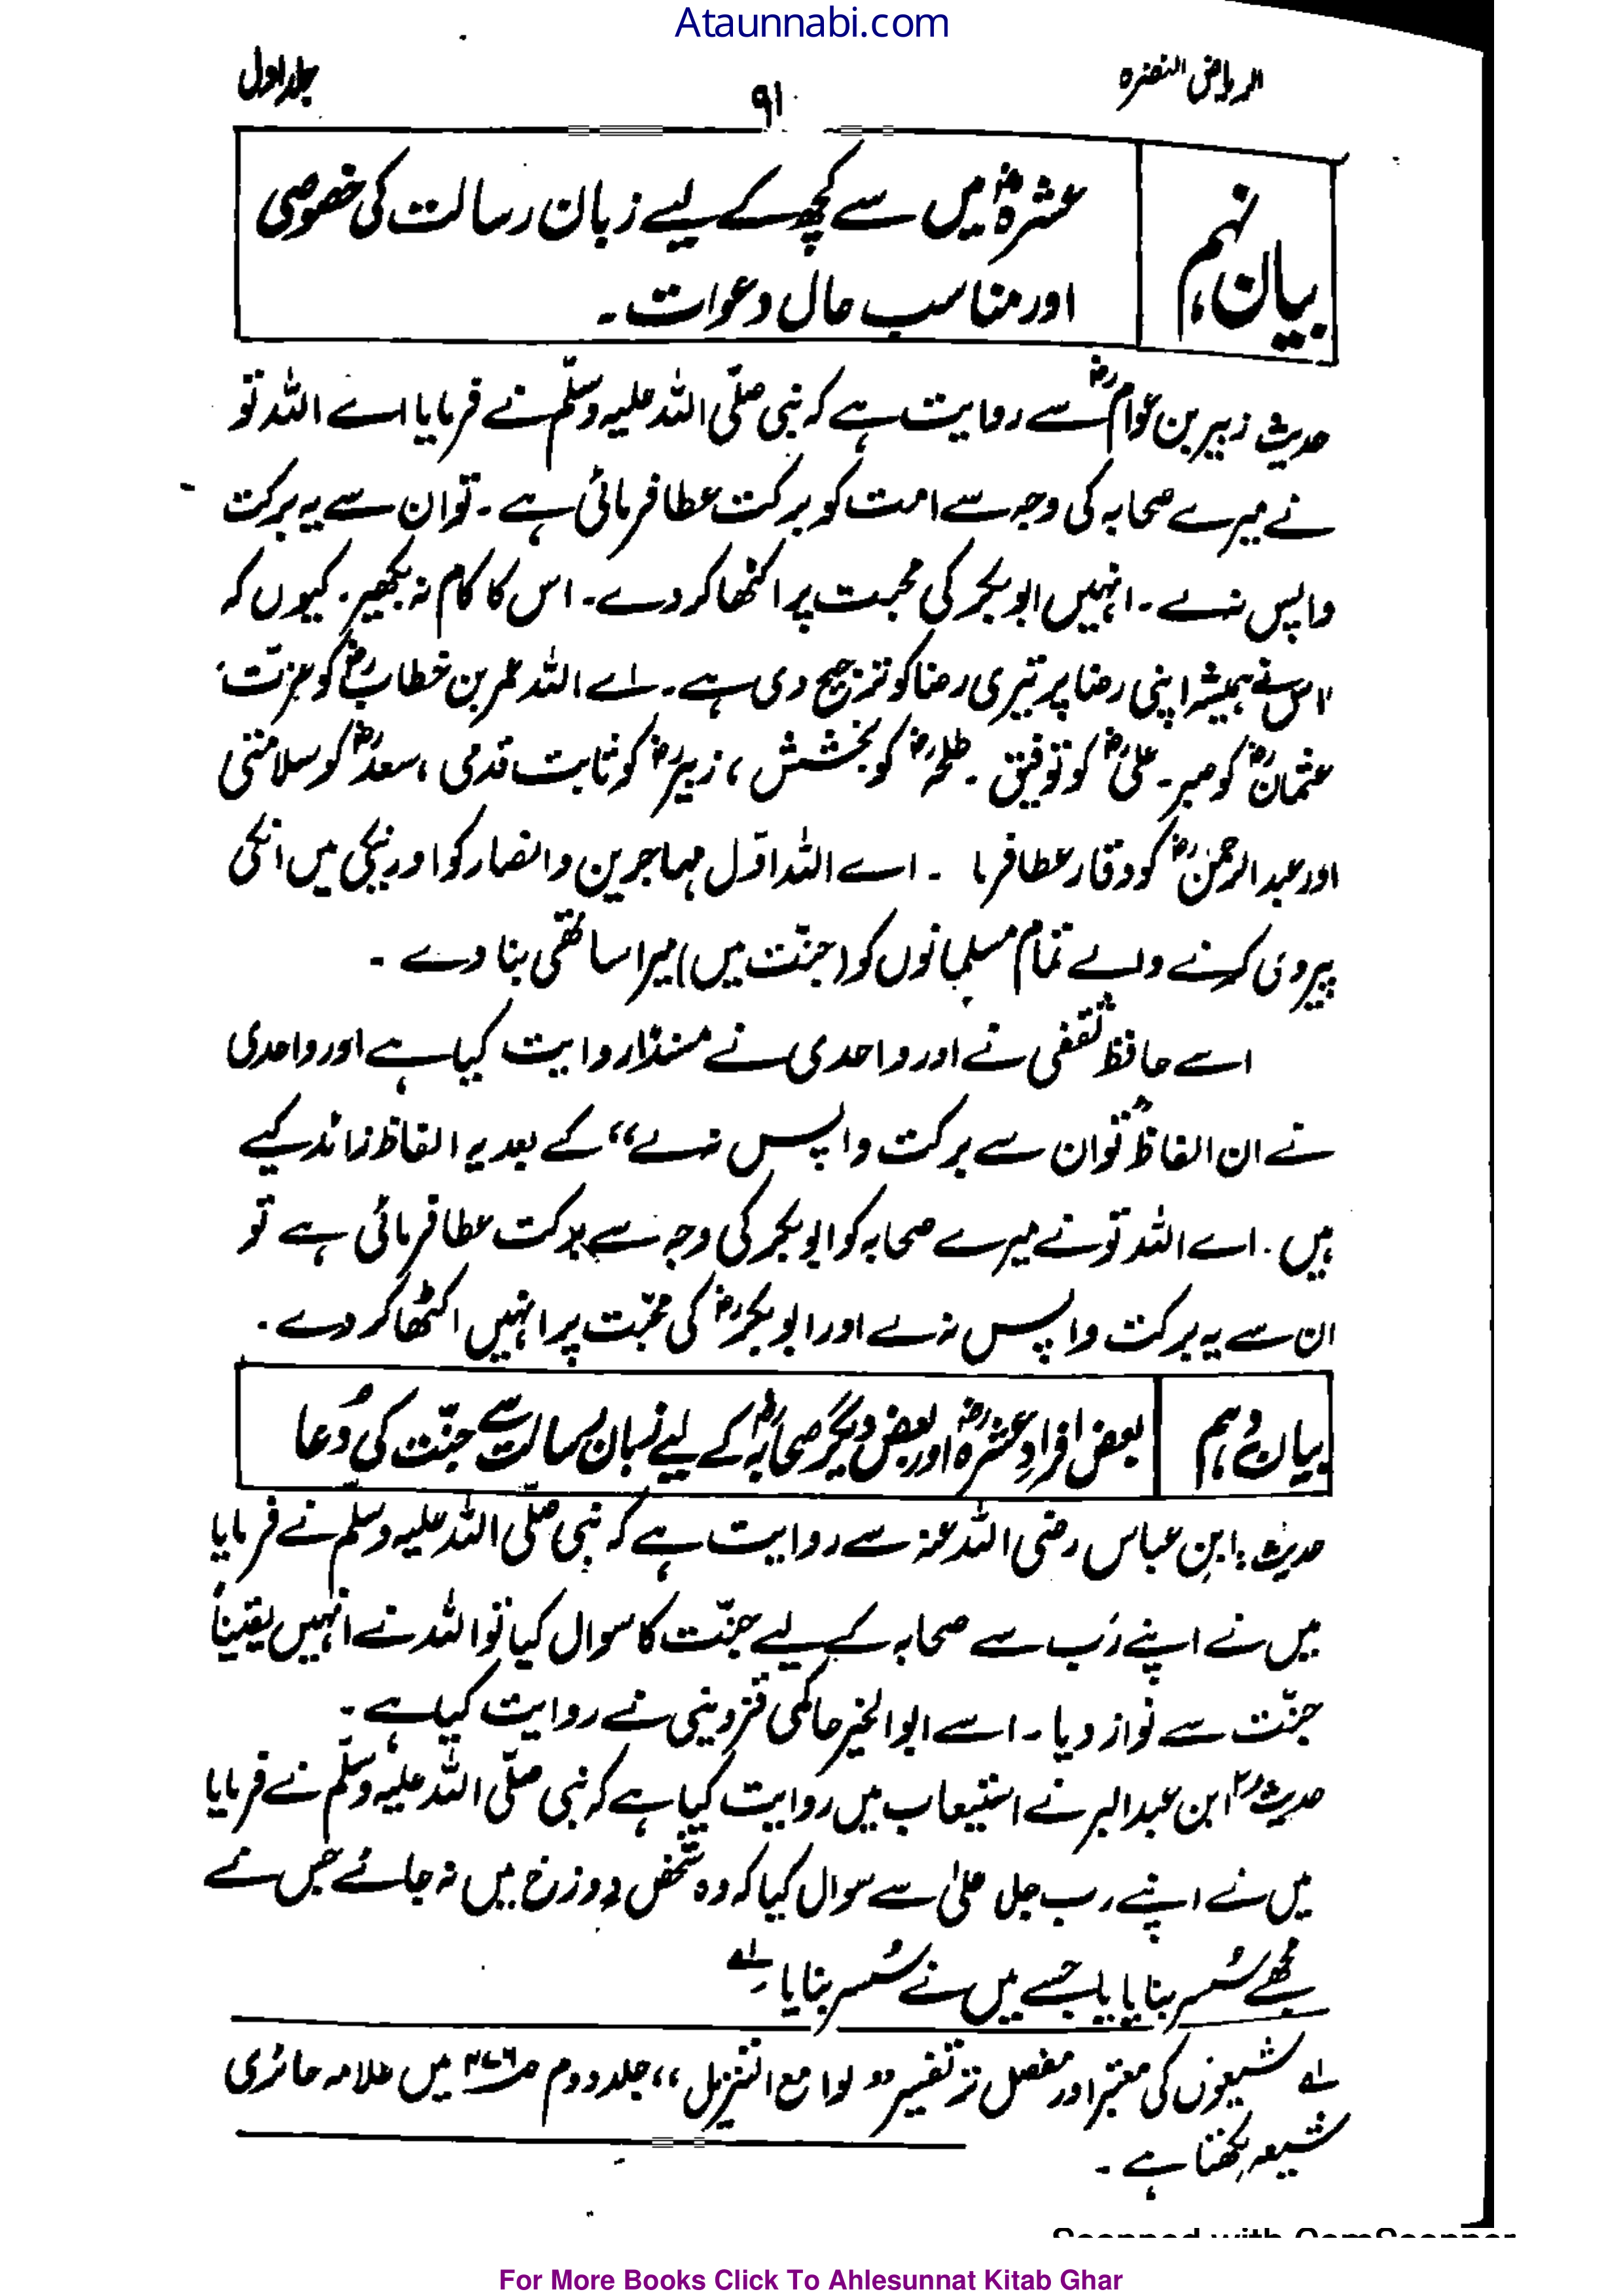 Ataunnabi.com
الریاض النضرہ
۹۱
جلد اول
بیان نہم
عشرہؓ میں سے کچھ کے لیے زبان رسالت کی خصوصی
اور مناسب حال دعوات ۔
حدیث زبیر بن عوامؓ سے روایت ہے کہ نبی صلّی اللہ علیہ وسلّم نے فرمایا اے اللہ تو
نے میرے صحابہ کی وجہ سے امت کو برکت عطا فرمائی ہے ۔ تو ان سے یہ برکت
واپس نہ لے ۔ انہیں ابو بکر کی محبت پر اکٹھا کر دے ۔ اس کا کام نہ بکھیر ۔ کیوں کہ
اس نے ہمیشہ اپنی رضا پر تیری رضا کو ترجیح دی ہے ۔ اے اللہ عمر بن خطابؓ کو عزت،
عثمانؓ کو صبر ۔ علیؓ کو توفیق ۔ طلحہؓ کو بخشش ، زبیرؓ کو ثابت قدمی ، سعدؓ کو سلامتی
اور عبد الرحمنؓ کو وقار عطا فرما ۔ اے اللہ اوّل مہاجرین و انصار کو اور نیکی میں انکی
پیروی کرنے والے تمام مسلمانوں کو (جنّت میں) میرا ساتھی بنا دے ۔
اسے حافظ ثقفی نے اور واحدی نے مسنداً روایت کیا ہے اور واحدی
نے ان الفاظ ”تو ان سے برکت واپس نہ لے“ کے بعد یہ الفاظ زائد کیے
ہیں ۔ اے اللہ تو نے میرے صحابہ کو ابو بکر کی وجہ سے برکت عطا فرمائی ہے تو
ان سے یہ برکت واپس نہ لے اور ابو بکرؓ کی محبّت پر انہیں اکٹھا کر دے ۔
بیان دہم
بعض افرادِ عشرہؓ اور بعض دیگر صحابہؓ کے لیے زبان رسالت سے جنّت کی دُعا
حدیث : ابن عباس رضی اللہ عنہ سے روایت ہے کہ نبی صلّی اللہ علیہ وسلم نے فرمایا
میں نے اپنے رَب سے صحابہ کے لیے جنّت کا سوال کیا تو اللہ نے انہیں یقیناً
جنّت سے نواز دیا ۔ اسے ابو الخیر حاکمی قزوینی نے روایت کیا ہے ۔
حدیث ۲ ابن عبد البر نے استیعاب میں روایت کیا ہے کہ نبی صلّی اللہ علیہ وسلّم نے فرمایا
میں نے اپنے رب جل علیٰ سے سوال کیا کہ وہ شخص دوزخ میں نہ جائے جس نے
مجھے سُسر بنایا یا جسے میں نے سُسر بنایا ۔ لے
لے شیعوں کی معتبر اور مفصل تر تفسیر ”لوامع التنزیل“ جلد دوم میں علامہ حائری
شیعہ لکھتا ہے ۔
For More Books Click To Ahlesunnat Kitab Ghar